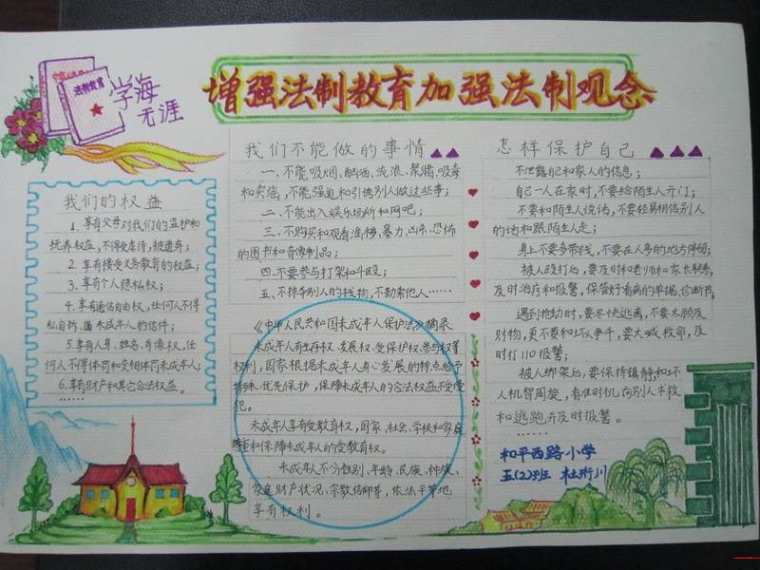 法制教育
学海
无涯
增强法制教育加强法制观念
我们的权益
1.享有父母对我们的监护和
抚养权益,不得虐待,被遗弃;
2.享有接受义务教育的权益;
3.享有个人隐私权;
4.享有通信自由权,任何人不得
私自拆、匿未成年人的信件;
5.享有人身、姓名、肖像权,任
何人不得体罚和变相体罚未成年人;
6.享有财产和其它合法权益。
……
我们不能做的事情
一.不能吸烟、酗酒、流浪、聚赌、吸毒
和卖淫,不能强迫和引诱别人做这些事;
二.不能出入娱乐场所和网吧;
三.不购买和观看淫秽、暴力、凶杀、恐怖
的图书和音像制品;
四.不要参与打架和斗殴;
五.不损害别人的钱物,不勒索他人……
《中华人民共和国未成年人保护法》摘录
未成年人有生存权、发展权、受保护权、参与权等
权利,国家根据未成年人身心发展的特点给予
特殊、优先保护,保障未成年人的合法权益不受侵
犯。
未成年人享有受教育权,国家、社会、学校和家庭
尊重和保障未成年人的受教育权。
未成年人不分性别、年龄、民族、种族、
家庭财产状况、宗教信仰等,依法平等地
享有权利。
怎样保护自己
不泄露自己和家人的信息;
自己一人在家时,不要给陌生人开门;
不要和陌生人说话,不要轻易相信别人
的话和跟陌生人走;
身上不要多带钱,不要在人多的地方停留;
被人殴打后,要及时和老师和家长联系,
及时治疗和报警,保管好看病的单据、诊断书;
遇到抢劫时,要尽快逃离,不要太顾及
财物,更不要和坏人争斗,要大喊救命,及
时打110报警;
被人绑架后,要保持镇静,和坏
人机智周旋,看准时机向别人求救
和逃跑并及时报警。
……
和平西路小学
五(2)班 杜珩川